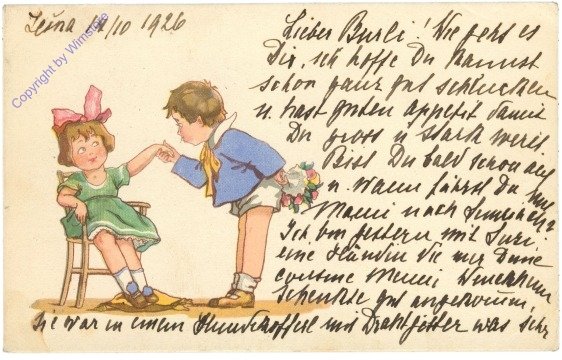 Jena 11/10 1926
Copyright by Wimstore
Lieber Burli! Wie geht es
Dir, ich hoffe Du kannst
schon ganz gut schlucken
u. hast guten Appetit damit
Du gross u stark wirst.
Bist Du bald schon auf
u. wann fährst Du mit
Mami nach
Ich bin gestern mit Susi
eine Hündin die mir Deine
cousine Menni
schenkte gut angekommen,
sie war in einem Hundekofferl mit Drahtgitter was sehr